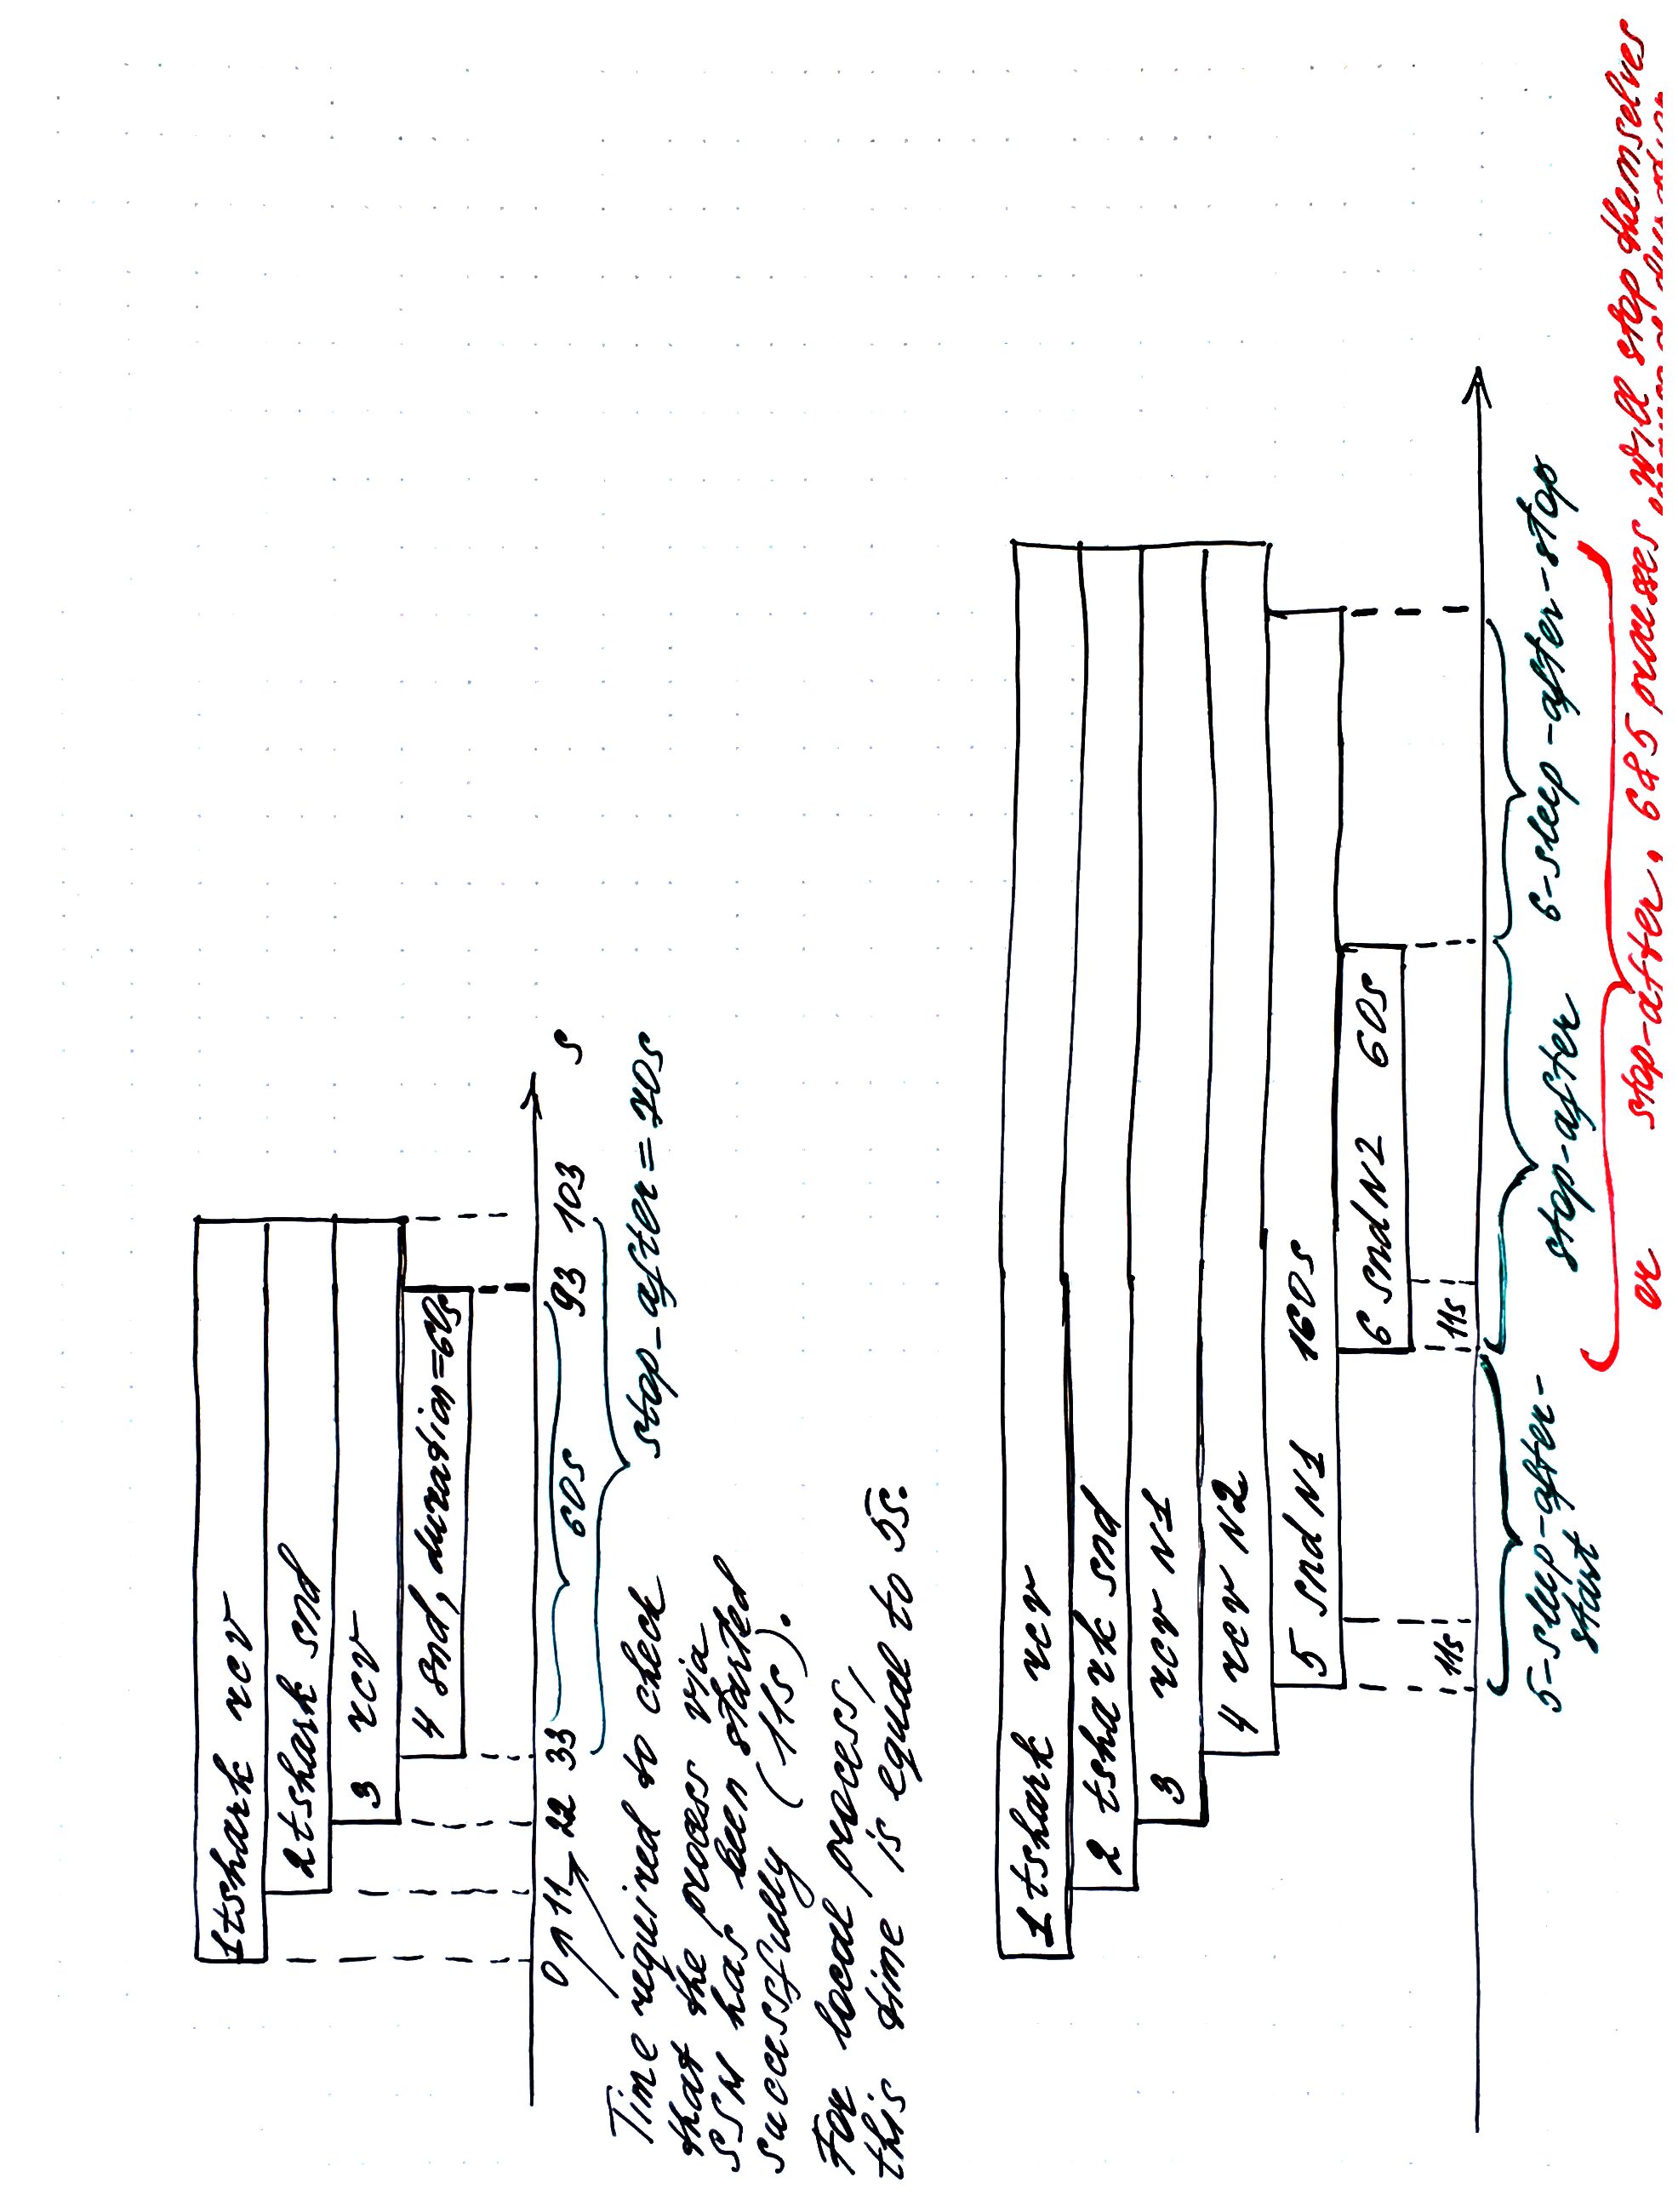 1 tshark rcv
2 tshark snd
3 rcv
4 snd, duration=60s
0 11 22 33 93 103 s
60s
stop-after=70s
Time required to check
that the process via
SSH has been started
successfully (11s).
For local process,
this time is equal to 5s.
1 tshark rcv
2 tshark snd
3 rcv N1
4 rcv N2
5 snd N1 160s
6 snd N2 60s
11s 11s
5-sleep-after-
start
stop-after
6-sleep-after-stop
or stop-after, 6&5 processes will stop themselves